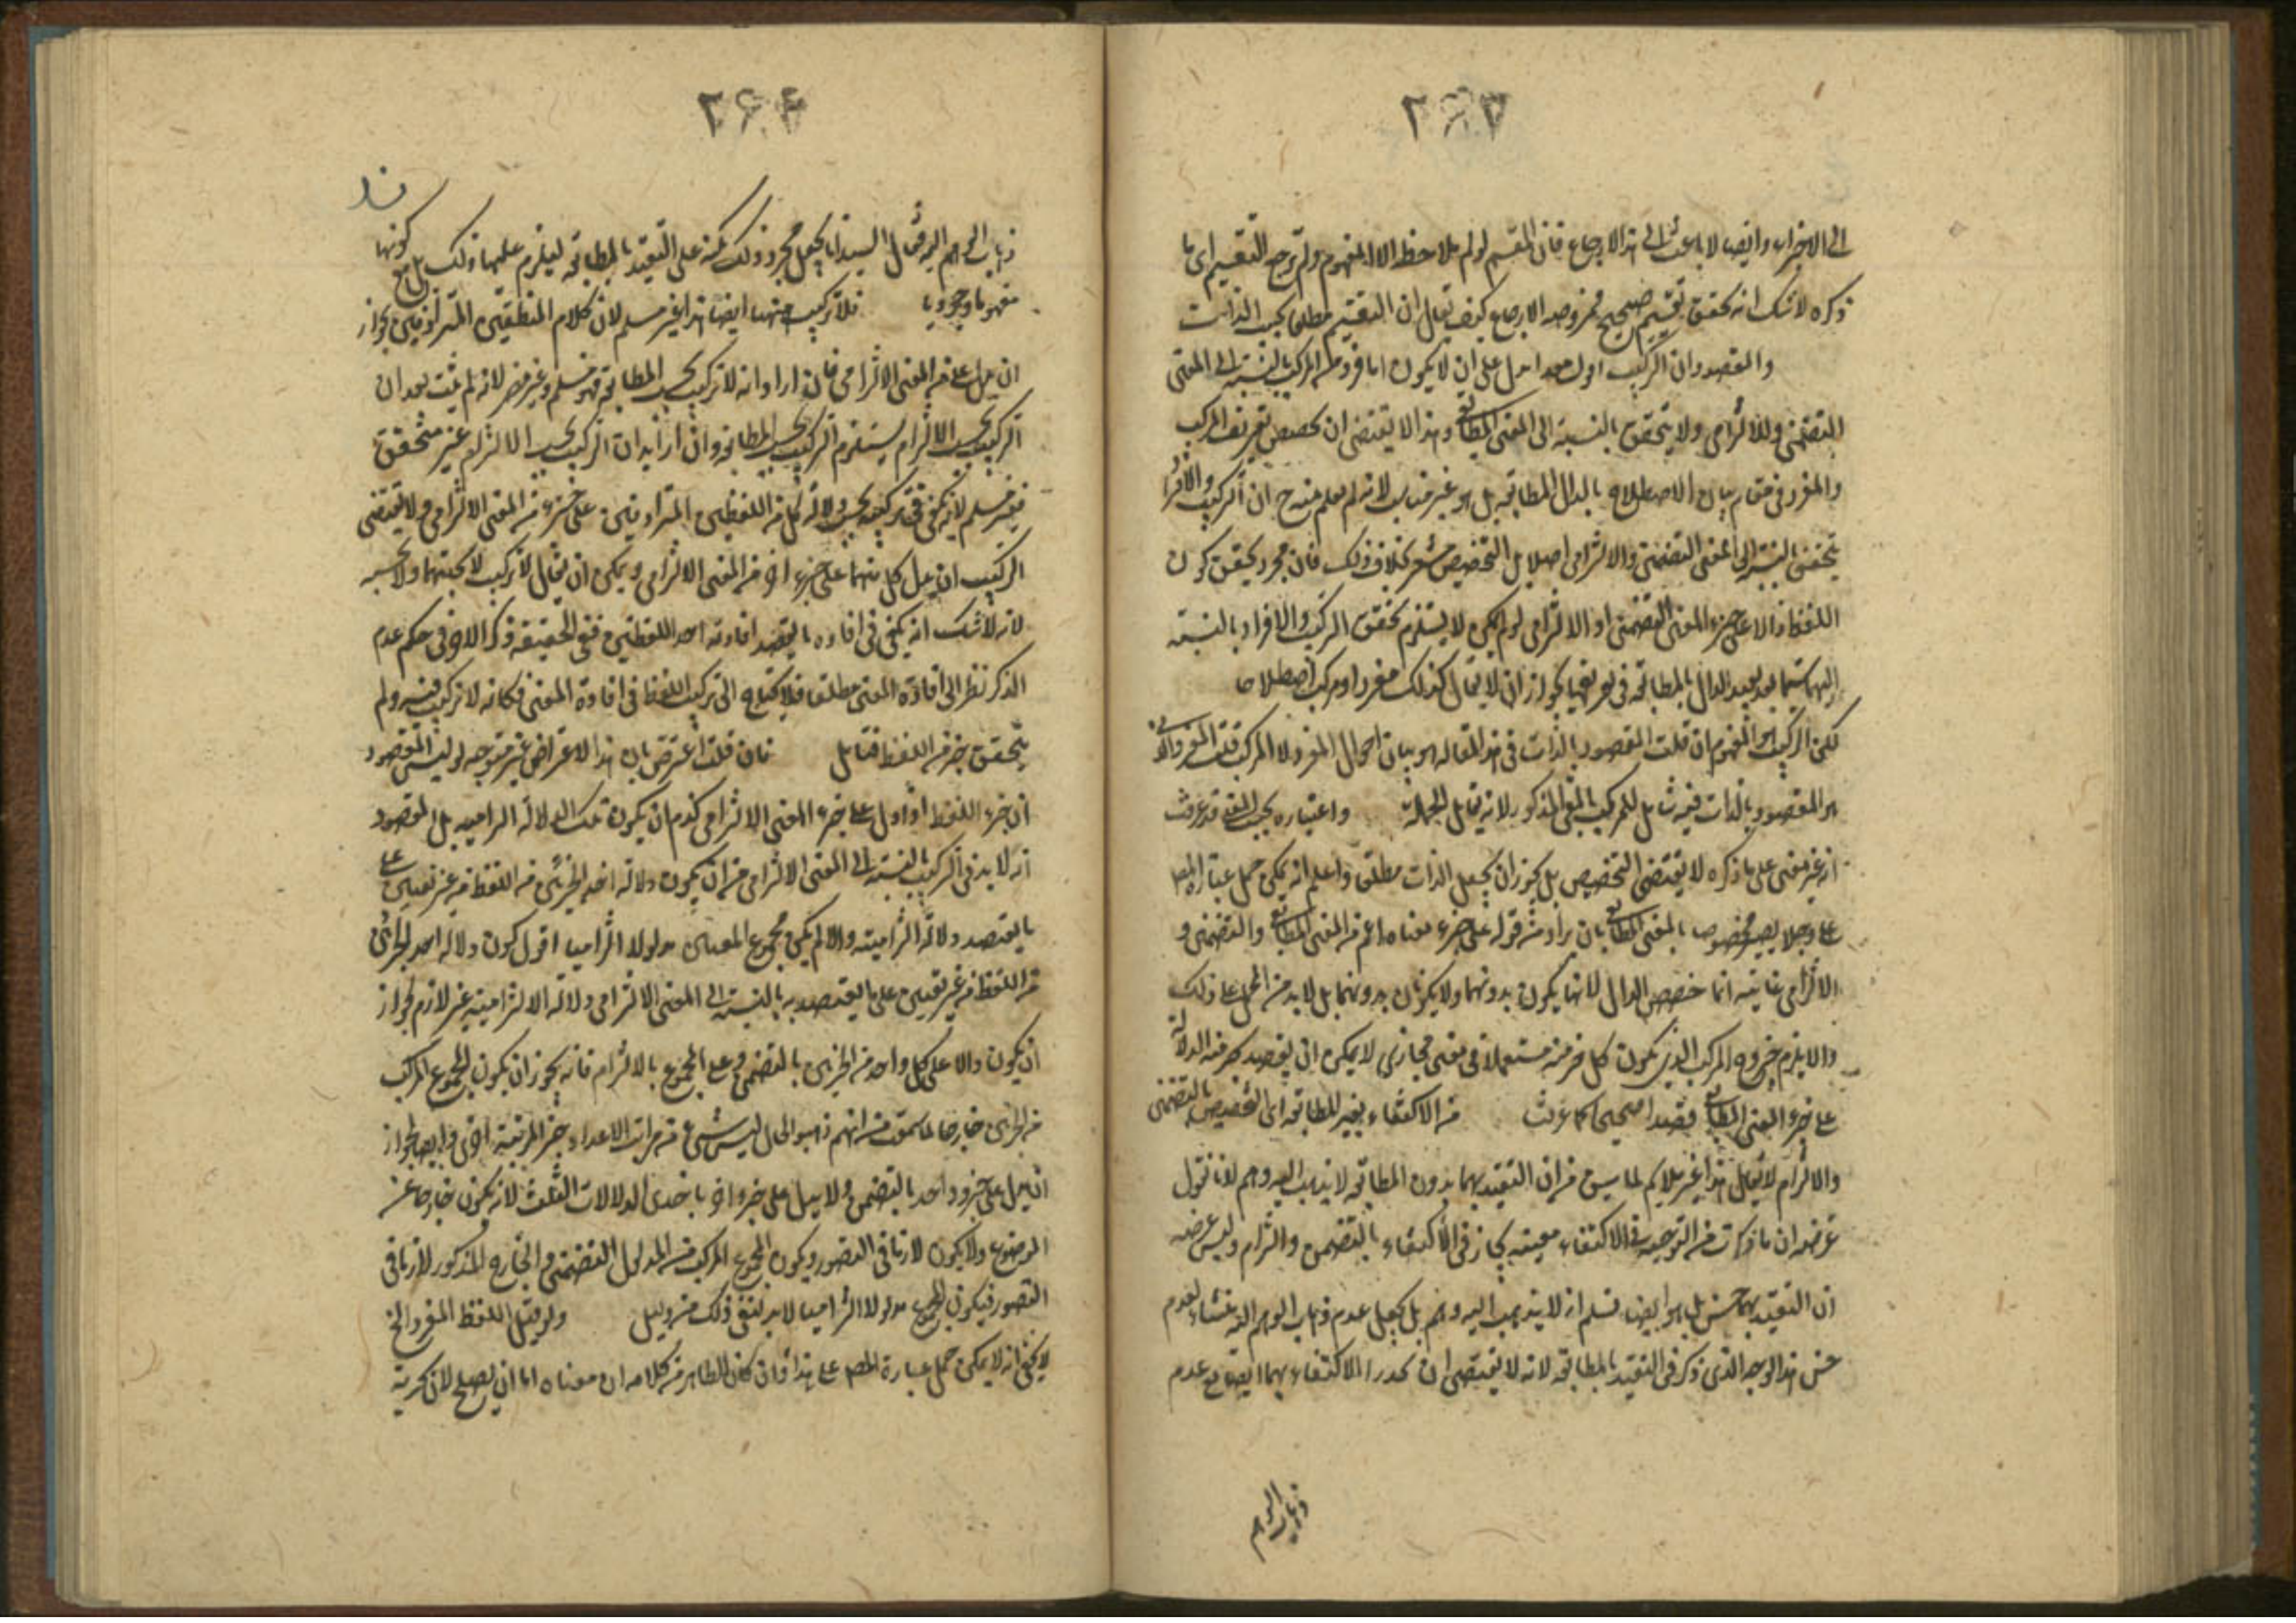 ۲۶۳
الى الاخراء وايضا لا باعث الى هذا الارجاع فان المقسم لو لم يلاحظ الا المفهوم ولم توجه التقسيم اى ما
ذكره لا شك انه تحقق تقسيم صحيح فمن وجه الارجاع كيف يقال ان التقسيم مطلقا بحسب الذات
والمقصود ان التركيب على ان لا يكون المركب بالنسبة الى المعنى
التضمنى والالتزامى ولا يتحقق بالنسبة الى المعنى المطابقى وهذا لا يقتضى ان يخصص تعريف المركب
والمفرد فى مقام بيان الاصطلاح بالدال المطابقة بل هو غير مناسب لانه لم يعلم منه ح ان التركيب والافراد
يتحقق بالنسبة الى المعنى التضمنى والالتزامى اصلا بل التخصيص مشعر بخلاف ذلك فان مجرد تحقق كون
اللفظ دالا على جزء المعنى التضمنى او الالتزامى لو لم يكن لا يستلزم تحقق التركيب والافراد بالنسبة
اليهما سيما بعد تقييد الدال بالمطابقة فى تعريفهما لجواز ان لا يقال كذلك مفردا ومركبا اصطلاحا
لكن التركيب هو المفهوم ان قلت المقصود بالذات فى هذه المقالة هو بيان احوال المفرد لا المركب قلت المفرد
هو المقصود بالذات فيه شامل للمركب بالمعنى المذكور لانه يقابل الجملة واعتباره بحسب المعنى قد عرفت
انه غير مبنى على ما ذكره لا يقتضى التخصيص بل يجوز ان يجعل الذات مطلق واعلم انه يمكن حمل عبارة المص
على وجه لا يصير مخصوصا بالمعنى المطابقى بان يراد من قوله على جزء معناه اعم من المعنى المطابقى والتضمنى و
الالتزامى غايته انما خصص الدال لانها يكون بدونهما ولا يكونان بدونها بل لا بد من الحمل على ذلك
والا يلزم خروج المركب الذى يكون كل جزء منه مستعملا فى معنى مجازى لا يمكن ان يقصد بجزء منه الدلالة
على جزء المعنى المطابقى قصدا صحيحا كما عرفت من الاكتفاء بغير المطابقة اى التخصيص بالتضمن
والالتزام لا يقال هذا غير ملايم لما سبق من ان التقييد بهما بدون المطابقة لا يذهب اليه وهم لانا نقول
غرضه ان ما ذكرت من التوجيه فى الاكتفاء بعينه يجاز فى الاكتفاء بالتضمن والتزام وليس غرضه
ان التقييد بهما حسن بل هو ايضا نسلم انه لا يذهب اليه وهم بل يجعل عدم ذهاب الوهم اليه منشاء لعدم
حسن هذا الوجه الذى ذكر فى التقييد بالمطابقة لانه لا يقتضى ان الاكتفاء بهما ايضا مع عدم
ذهاب الوهم
۲۶۴
ذهاب الوهم اليه فقال السيد انا يجعل مجرد ذلك نكتة على التقييد بالمطابقة ليلزم عليها ذلك بل مع كونها
مفهوما وجوديا فلا تركيب منهما ايضا هذا غير مسلم لان كلام المنطقيين المترادفين يجوز
ان يدل على جزء المعنى الالتزامى فان اراد انه لا تركيب بحسب المطابقة فهو مسلم وغير مضر لانه لم يثبت بعد ان
التركيب بحسب الالتزام يستلزم التركيب بحسب المطابقة وان اراد به ان التركيب بحسب الالتزام غير متحقق
فغير مسلم لانه يكفى فى تركيبه بحسبه دلالة كل من اللفظين المترادفين على جزء من المعنى الالتزامى ولا يقتضى
التركيب ان يدل كل منهما على جزء اخر من المعنى الالتزامى ويمكن ان يقال لا تركيب لا بحسبهما ولا بحسبه
لانه لا شك انه يكفى فى افادة ما يقصد افادته احد اللفظين ففى الحقيقة ذكر الاخر فى حكم عدم
الذكر نظرا الى افادة المعنى مطلقا فلا يحتاج الى تركيب اللفظ فى افادة المعنى فكانه لا تركيب فيه ولم
يتحقق جزء من اللفظ فتأمل فان قلت اعترض بان هذا الاعتراض غير متوجه اذ ليس المقصود
ان جزء اللفظ اذا دل على جزء المعنى الالتزامى لزم ان يكون تلك الدلالة الزامية بل المقصود
انه لا بد فى التركيب بالنسبة الى المعنى الالتزامى من ان يكون دلالة احد الجزئين من اللفظ من غير تعيين على
ما يقصد دلالة التزامية والا لم يكن مجموع المعنيين مدلولا التزاميا اقول كون دلالة احد الجزئين
من اللفظ من غير تعيين على ما يقصد به بالنسبة الى المعنى الالتزامى دلالة الالتزامية غير لازم لجواز
ان يكون دالا على كل واحد من الجزئين بالتضمن وعلى المجموع بالالتزام فانه يجوز ان يكون المجموع المركب
من الجزئين خارجا لما سمعت من انهم ذهبوا الى ان ليس شىء من مراتب الاعداد جزء المرتبة اخرى وايضا يجوز
ان يدل على جزء واحد بالتضمن ولا يدل على جزء اخر باحدى الدلالات الثلث لانه يكون خارجا عن
الموضوع ولا يكون لازما فى التصور ويكون المجموع المركب من المدلول التضمنى والخارج المذكور لازما فى
التصور فيكون المجموع مدلولا التزاميا لا بد لنفى ذلك من دليل ولو قيل اللفظ المفرد الخ
لا يخفى انه لا يمكن حمل عبارة المص على هذا وان كان الظاهر من كلامه ان معناه اما ان يصلح لان